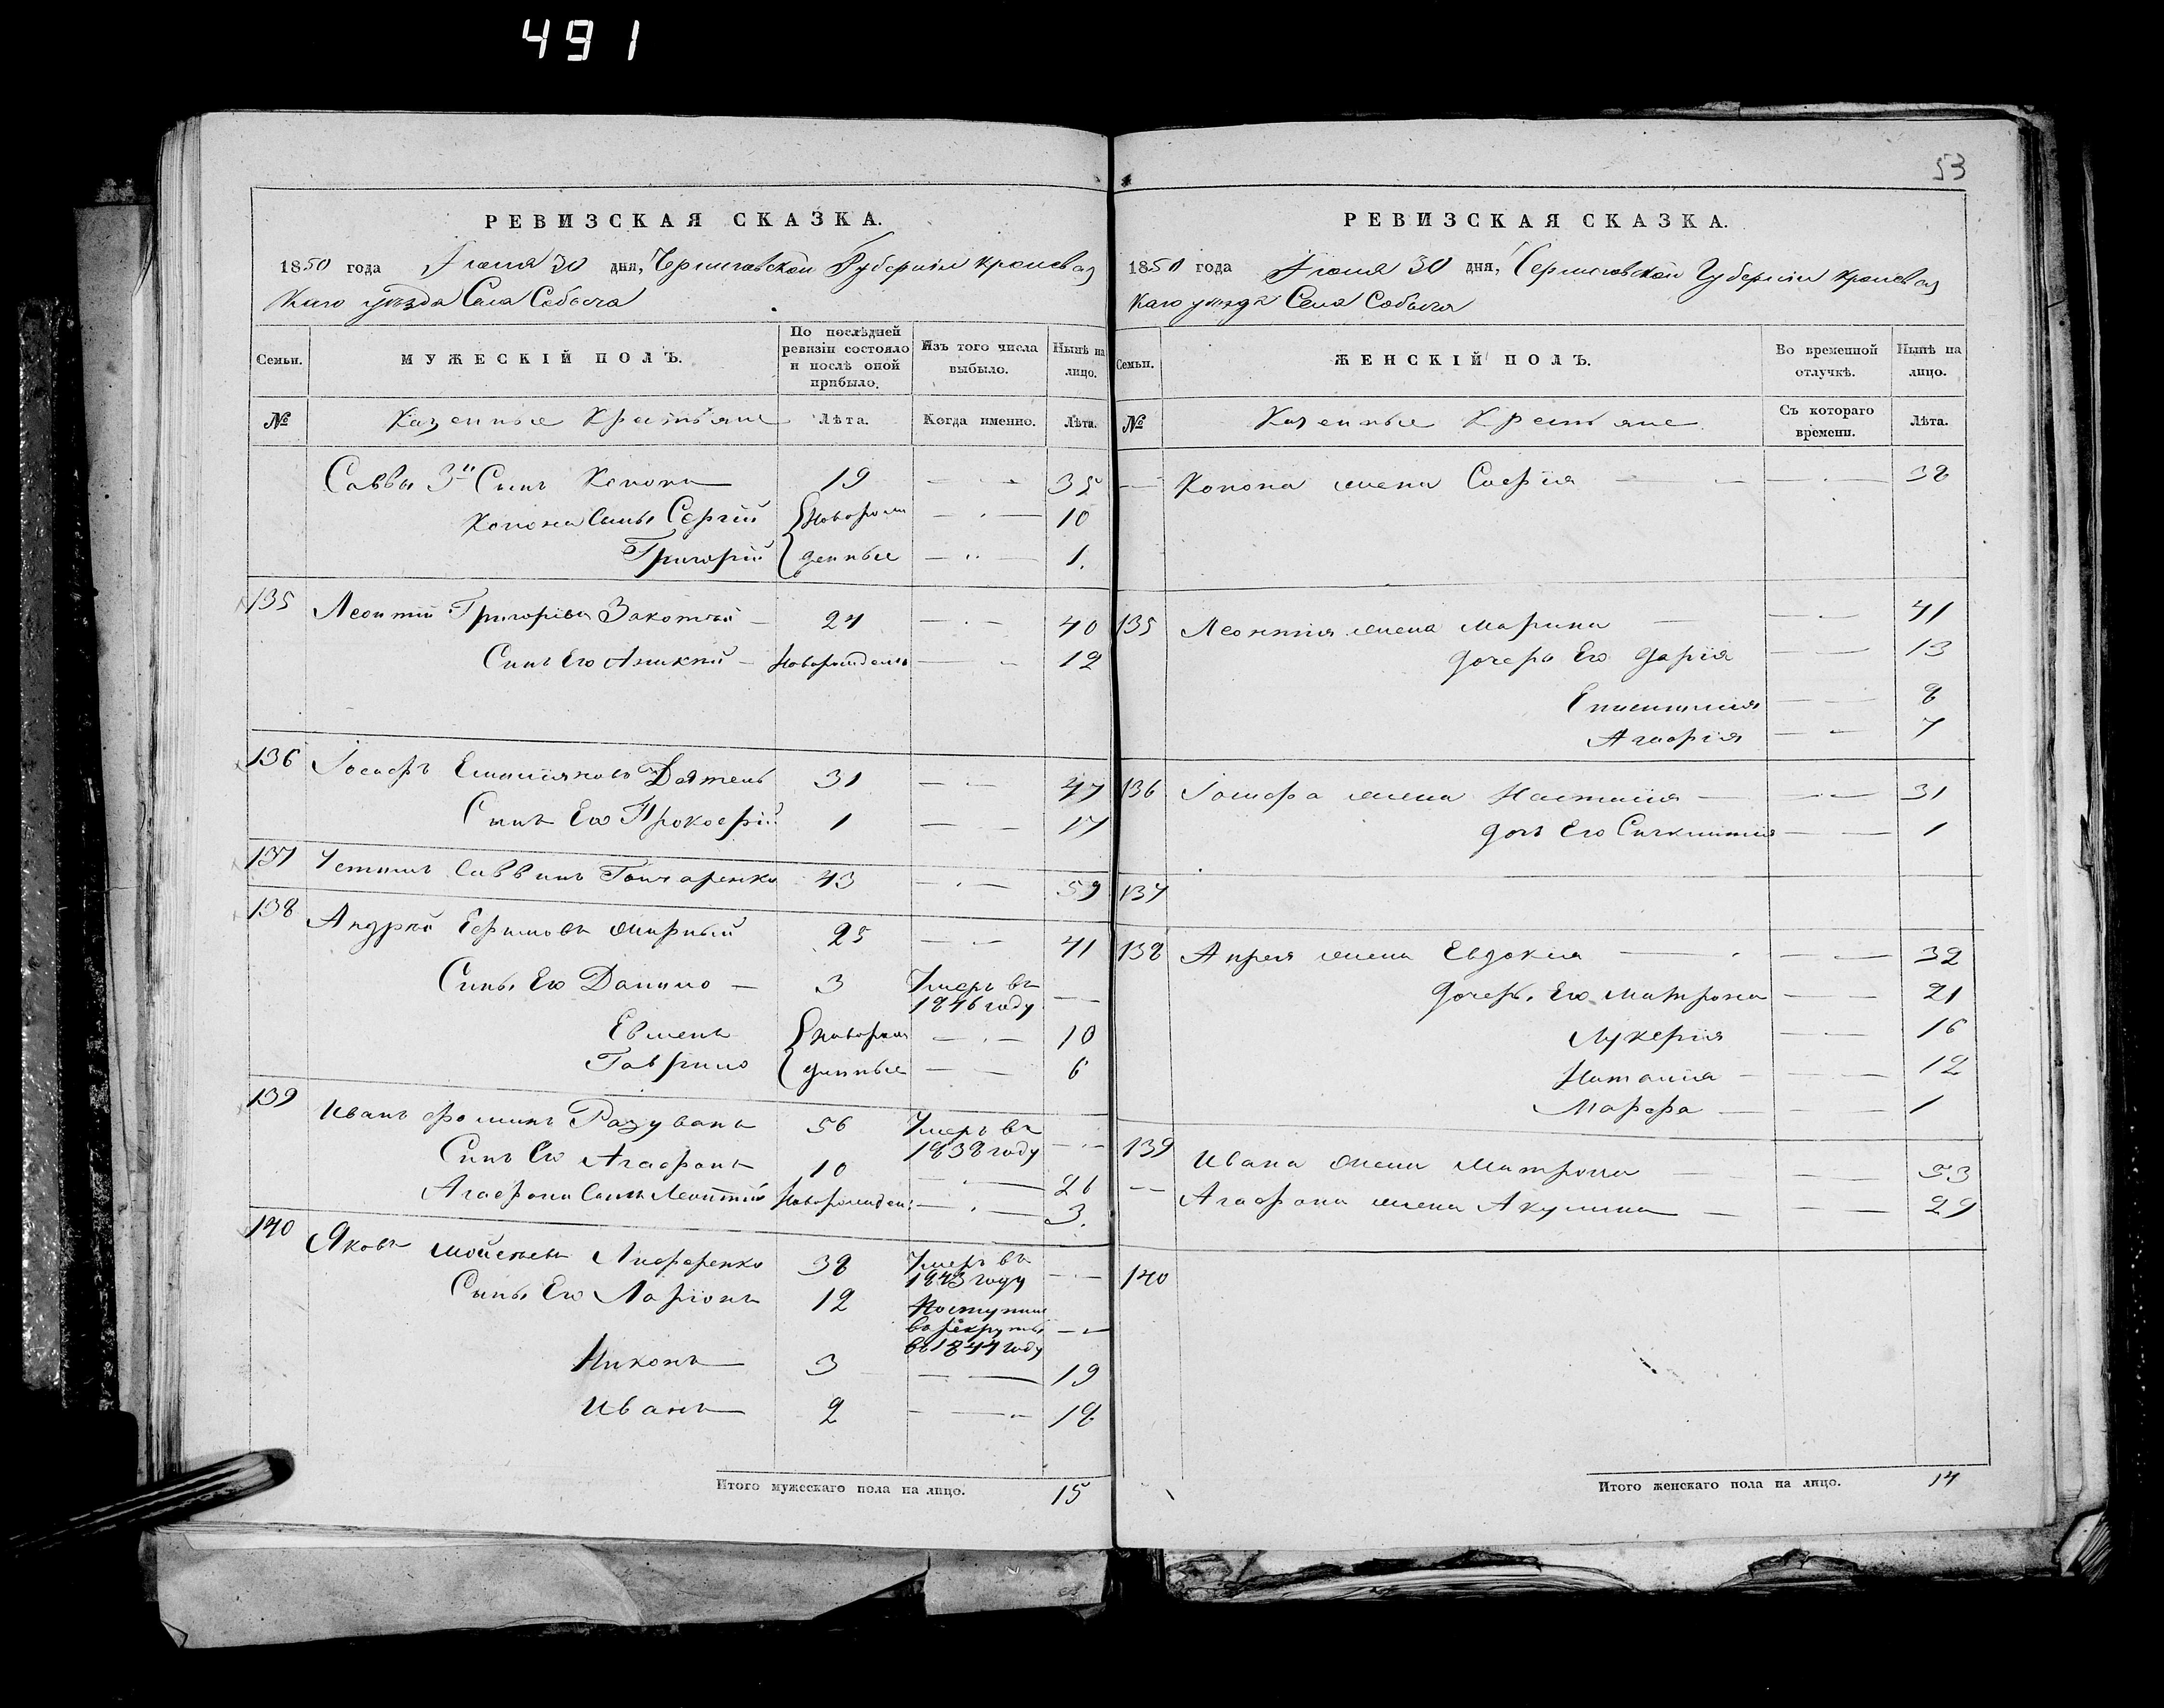 491
53
РЕВИЗСКАЯ СКАЗКА.
1850 года Іюня 30 дня, Черниговской Губерніи Кролевец
каго уѣзда Села Собыча
Семьи. МУЖЕСКІЙ ПОЛЪ. По послѣдней ревизіи состояло и послѣ оной прибыло. Изъ того числа выбыло. Нынѣ на лицо.
№ Казенные Крестьяне Лѣта. Когда именно. Лѣта.
Саввы 3й Сынъ Конона 19 35
Конона Сыны Сергій Новорож 10
Григорій денные 1.
135 Леонтій Григорьевъ 24 40
Сынъ Его Новорожденъ 12
136 Іосифъ Емельяновъ Дятель 31 47
Сынъ Его Прокофій 1 17
137 Устинъ Саввинъ Гончаренко 43 59
138 Андрей Ефимовъ Жирный 25 41
Сыны Его Данило 3 Умеръ въ
1846 году
Евменъ Новорож 10
Гаврило денные 6
139 Иванъ Фоминъ Разуванъ 56 Умеръ въ
1838 году
Сынъ Его Агафонъ 10 26
Агафона Сынъ Леонтій Новорожден: 3.
140 Яковъ Мойсеевъ 38 Умеръ въ
1843 году
Сыны Его Ларіонъ 12 Поступил
въ рекруты
въ 1844 году
Никонъ 3 19
Иванъ 2 18
Итого мужескаго пола на лицо. 15
РЕВИЗСКАЯ СКАЗКА.
1850 года Іюня 30 дня, Черниговской Губерніи Кролевец
каго уѣзда Села Собыча
Семьи. ЖЕНСКІЙ ПОЛЪ. Во временной отлучкѣ. Нынѣ на лицо.
№ Казенные Крестьяне Съ котораго времени. Лѣта.
Конона жена Софія 38
135 Леонтія жена Марина 41
Дочери Его Дарія 13
8
Агафія 7
136 Іосифа жена Настасія 31
Дочь Его 1
137
138 Андрея жена Евдокія 39
Дочери Его Матрона 21
Лукерія 16
Наталія 12
Марфа 1
139 Ивана жена Матрона 53
Агафона жена Акулина 29
140
Итого женскаго пола на лицо. 14